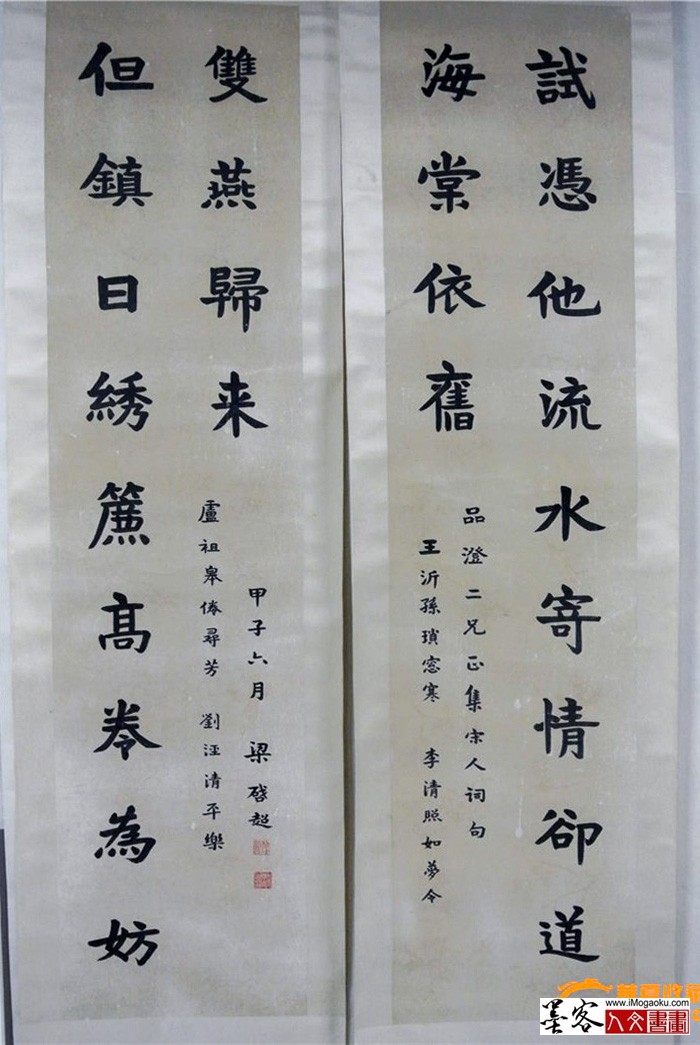 試憑他流水寄情卻道
海棠依舊
品澄二兄正集宋人词句
王沂孫瑣窓寒 李清照如夢令
但鎮日綉簾髙卷為妨
雙燕歸来
盧祖皐倦尋芳 劉涇清平樂
甲子六月 梁啓超
墨客人文書畫
www.iMogaoku.com